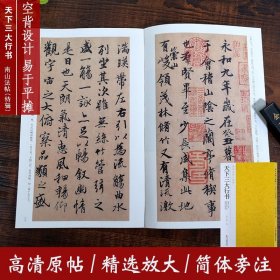 天下三大行书
空背设计 易于平摊
永和九年歲在癸丑暮
于會稽山陰之蘭亭脩稧事
也群賢畢至少長咸集此地
崇山
有峻領茂林脩竹又有清流激
湍暎帶左右引以為流觴曲水
列坐其次雖無絲竹管弦之
盛一觴一詠亦足以暢叙幽情
是日也天朗氣清惠風和暢仰
觀宇宙之大俯察品類之盛
天下三大行书
高清原帖/精选放大/简体旁注